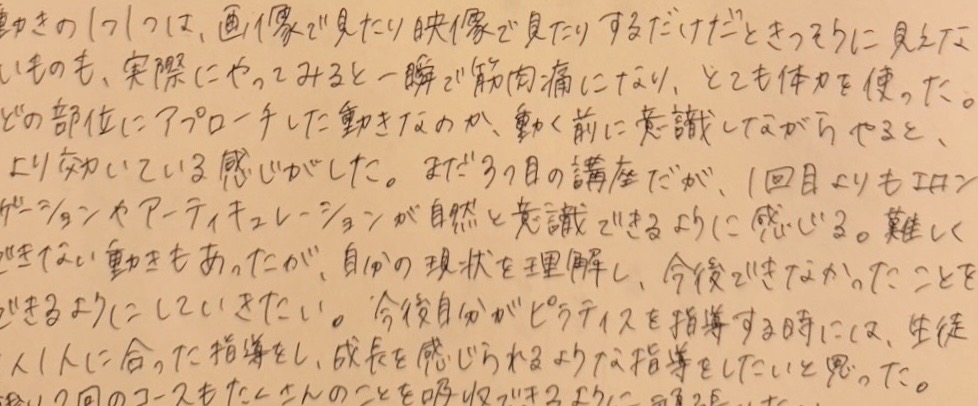 動きの1つ1つは、画像で見たり映像で見たりするだけだときつそうに見えな
いものも、実際にやってみると一瞬で筋肉痛になり、とても体力を使った。
どの部位にアプローチした動きなのか、動く前に意識しながらやると、
より効いている感じがした。まだ3つ目の講座だが、1回目よりもエロン
ゲーションやアーティキュレーションが自然と意識できるように感じる。難しく
できない動きもあったが、自分の現状を理解し、今後できなかったことを
できるようにしていきたい。今後自分がピラティスを指導する時には、生徒
1人1人に合った指導をし、成長を感じられるような指導をしたいと思った。
残り2回のコースもたくさんのことを吸収できるように頑張りたい